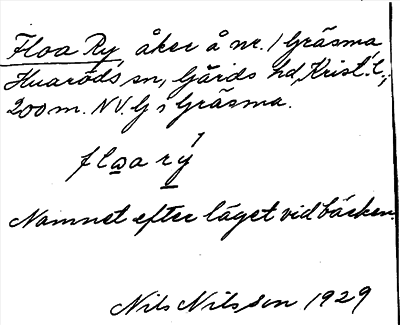 Floa Ry, åker å nr. 1 Gräsma,
Huaröds sn, Gärds hd, Krist. l.,
200 m. NV. G i Gräsma.
floa rý
Namnet efter läget vid bäcken.
Nils Nilsson 1929